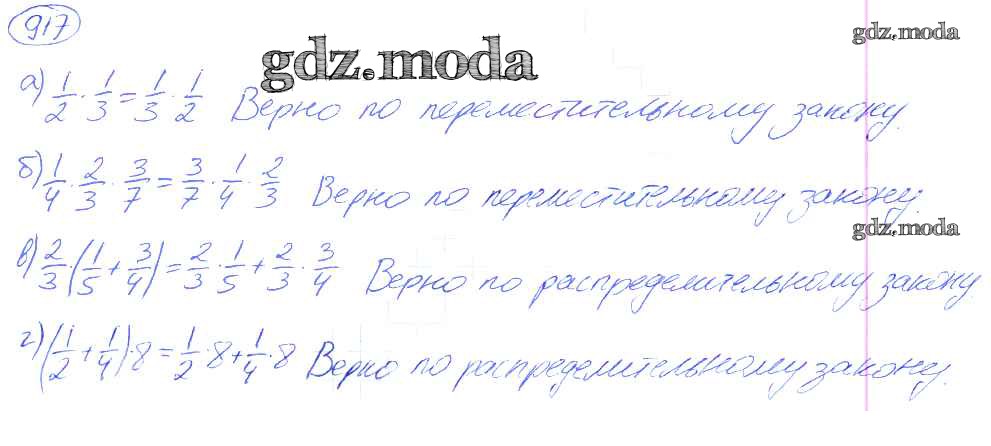 917
gdz.moda
gdz.moda
а) 1/2 · 1/3 = 1/3 · 1/2 Верно по переместительному закону.
б) 1/4 · 2/3 · 3/7 = 3/7 · 1/4 · 2/3 Верно по переместительному закону.
gdz.moda
в) 2/3 · (1/5 + 3/4) = 2/3 · 1/5 + 2/3 · 3/4 Верно по распределительному закону
г) (1/2 + 1/4) · 8 = 1/2 · 8 + 1/4 · 8 Верно по распределительному закону.